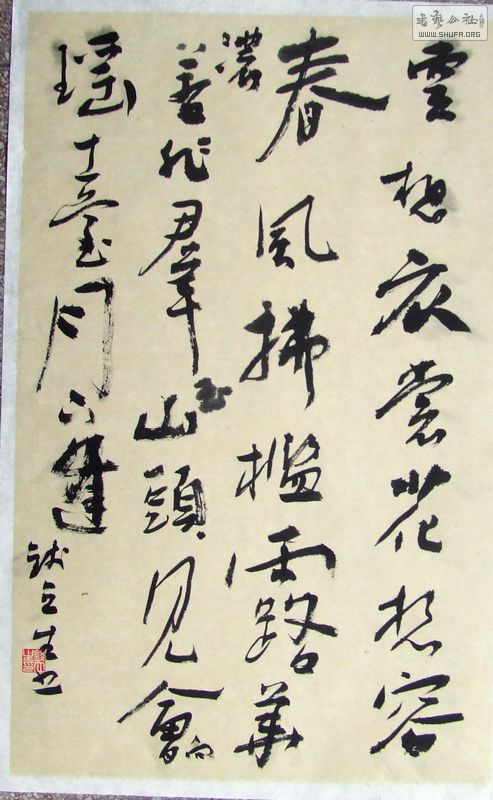 雲想衣裳花想容
春風拂檻露華
濃若非羣玉山頭見會向
瑤臺月下逢
书艺公社
WWW.SHUFA.ORG